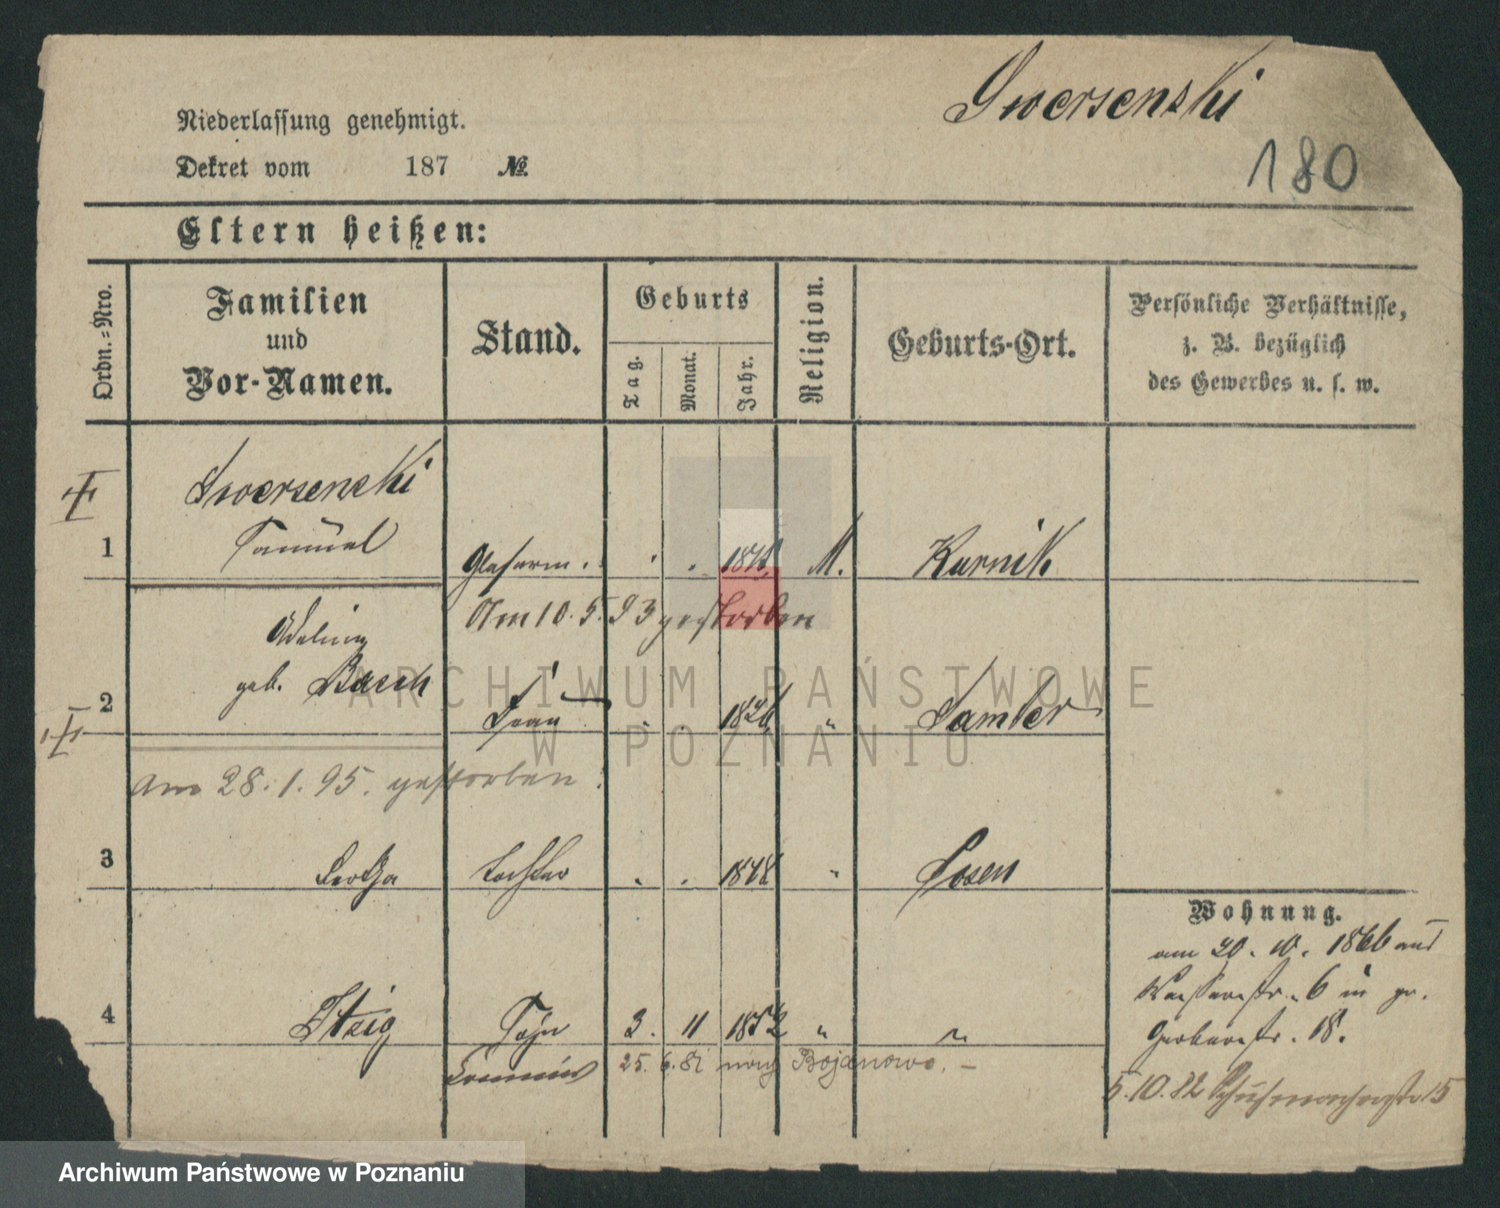 Swersenski
180
Niederlassung genehmigt.
Dekret vom 187 №.
Eltern heißen:
Ordn.-Nro.
Familien
und
Vor-Namen.
Stand.
Geburts
Tag.
Monat.
Jahr.
Religion.
Geburts-Ort.
Persönliche Verhältnisse,
z. B. bezüglich
des Gewerbes u. s. w.
Swersenski
Samuel
1 M. Kurnik
Am 10. 5. 93 gestorben
geb. Basch
2 Frau Samter
am 28. 1. 95. gestorben
3 Tochter 1848 Posen
4 Itzig Sohn 3. 11 1852 " "
25. 6. 81 nach Bojanowo. –
Wohnung.
am 20. 10. 1866 aus
6 in gr.
Gerberstr. 18.
5. 10. 82 Schuhmacherstr 15
ARCHIWUM PAŃSTWOWE
W POZNANIU
Archiwum Państwowe w Poznaniu